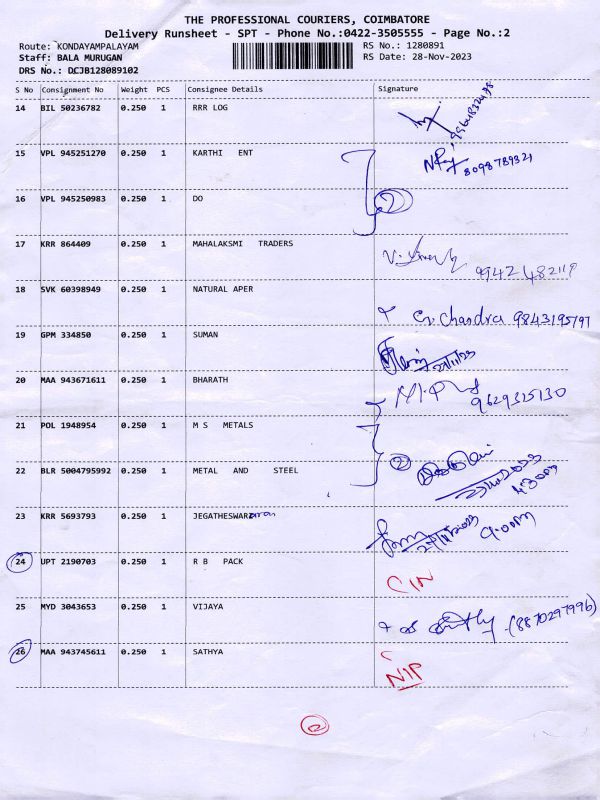 THE PROFESSIONAL COURIERS, COIMBATORE
Delivery Runsheet - SPT - Phone No.:0422-3505555 - Page No.:2
Route: KONDAYAMPALAYAM RS No.: 1280891
Staff: BALA MURUGAN RS Date: 28-Nov-2023
DRS No.: DCJB128089102
S No Consignment No Weight PCS Consignee Details Signature
14 BIL 50236782 0.250 1 RRR LOG
15 VPL 945251270 0.250 1 KARTHI ENT 8098789321
16 VPL 945250983 0.250 1 DO 2
17 KRR 864409 0.250 1 MAHALAKSMI TRADERS
18 SVK 60398949 0.250 1 NATURAL APER Chandra 9843195797
19 GPM 334850 0.250 1 SUMAN
20 MAA 943671611 0.250 1 BHARATH 9629325130
21 POL 1948954 0.250 1 M S METALS
22 BLR 5004795992 0.250 1 METAL AND STEEL 2
23 KRR 5693793 0.250 1 JEGATHESWAR
24 UPT 2190703 0.250 1 R B PACK CIN
25 MYD 3043653 0.250 1 VIJAYA (8870297996)
26 MAA 943745611 0.250 1 SATHYA NIP